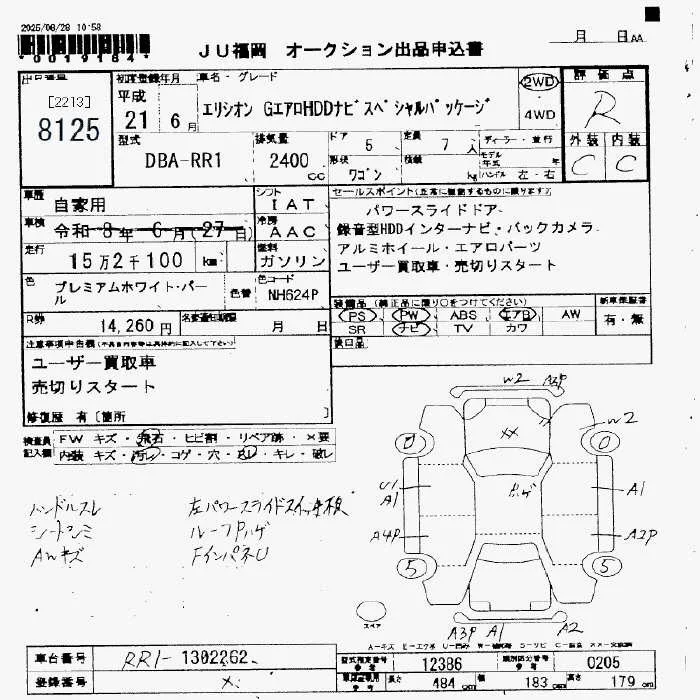 2025/08/28 10:58
*0019184*
JU福岡 オークション出品申込書
月 日 AA
出品番号
[2213]
8125
初度登録年月
平成
21 6月
車名・グレード
エリシオン GエアロHDDナビスペシャルパッケージ
2WD
4WD
評価点
R
外装 内装
C C
型式
DBA-RR1
排気量
2400
cc
ドア 5
形状 ワゴン
定員 7人
積載 kg
ディーラー・並行
モデル年式 年
ハンドル 左・右
車歴
自家用
シフト
IAT
車検
令和 8年 6月(27日)
冷房
AAC
走行
15万2千100 km
燃料
ガソリン
色
プレミアムホワイト・パール
色替
色コード
NH624P
R券
14,260円
名変通知期限
月 日
セールスポイント(正常に機能するものに限ります)
パワースライドドア
録音型HDDインターナビ・バックカメラ
アルミホイール・エアロパーツ
ユーザー買取車・売切りスタート
装備品(純正品に限り○をつけてください)
PS PW ABS エアB AW
SR ナビ TV カワ
新車保証書
有・無
後日品
注意事項申告欄(不具合内容等は具体的に記入して下さい)
ユーザー買取車
売切りスタート
修復歴 有〔箇所 〕
検査員記入欄
FW キズ・飛石・ヒビ割・リペア跡・×要
内装 キズ・汚レ・コゲ・穴・凹・キレ・破レ
ハンドルスレ
シートシミ
AWキズ
左パワースライドスイッチ
ルーフハゲ
FインパネU
W2 A2P
W2
XX
ハゲ
U1
A1
A1
A4P
A2P
5
5
A3P A1
A2
スペア
A-キズ E-エクボ U-凹み W-補修跡 S-サビ C-腐食 XX-交換済
車台番号
RR1-1302262
登録番号
×
型式指定番号
12386
類別区分番号
0205
長さ 484 cm
幅 183 cm
高さ 179 cm